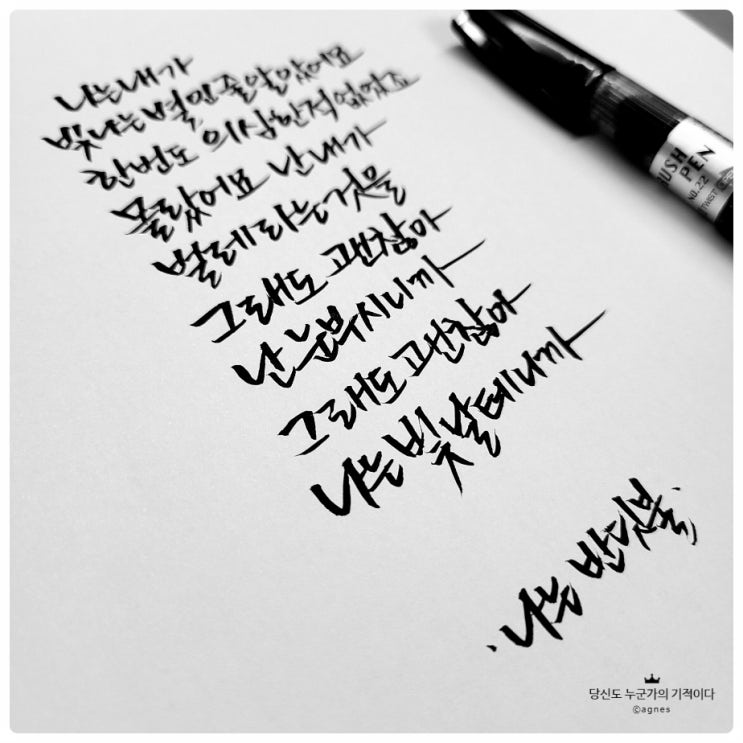 나는 내가
빛나는 별인 줄 알았어요
한번도 의심한 적 없었죠
몰랐어요 난 내가
벌레라는 것을
그래도 괜찮아
난 눈부시니까
그래도 괜찮아
나는 빛날 테니까
'나는 반딧불'
BUSH
PEN
NO.22
TWIST
당신도 누군가의 기적이다
©agnes